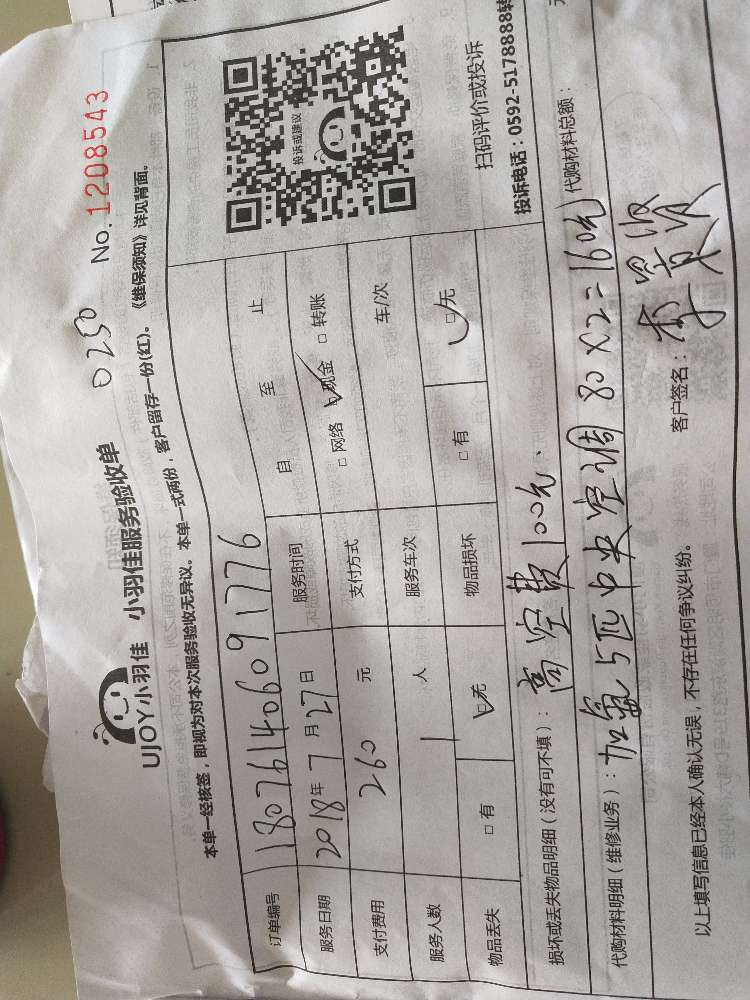 UJOY小羽佳 小羽佳服务验收单 0250 No. 1208543
本单一经核签，即视为对本次服务验收无异议。本单一式两份，客户留存一份(红)。《维保须知》详见背面。
订单编号 180761406091776
服务日期 2018年7月27日 服务时间 自 至 止
支付费用 260 元 支付方式 □网络 ☑现金 □转账
服务人数 1 人 服务车次 车/次
物品丢失 □有 ☑无 物品损坏 □有 ☑无
投诉或建议
扫码评价或投诉
投诉电话：0592-5178888转
损坏或丢失物品明细（没有可不填）：高空费100元、
代购材料明细（维修业务）：加氟5匹中央空调 80×2=160元 代购材料总额：
以上填写信息已经本人确认无误，不存在任何争议纠纷。 客户签名：李